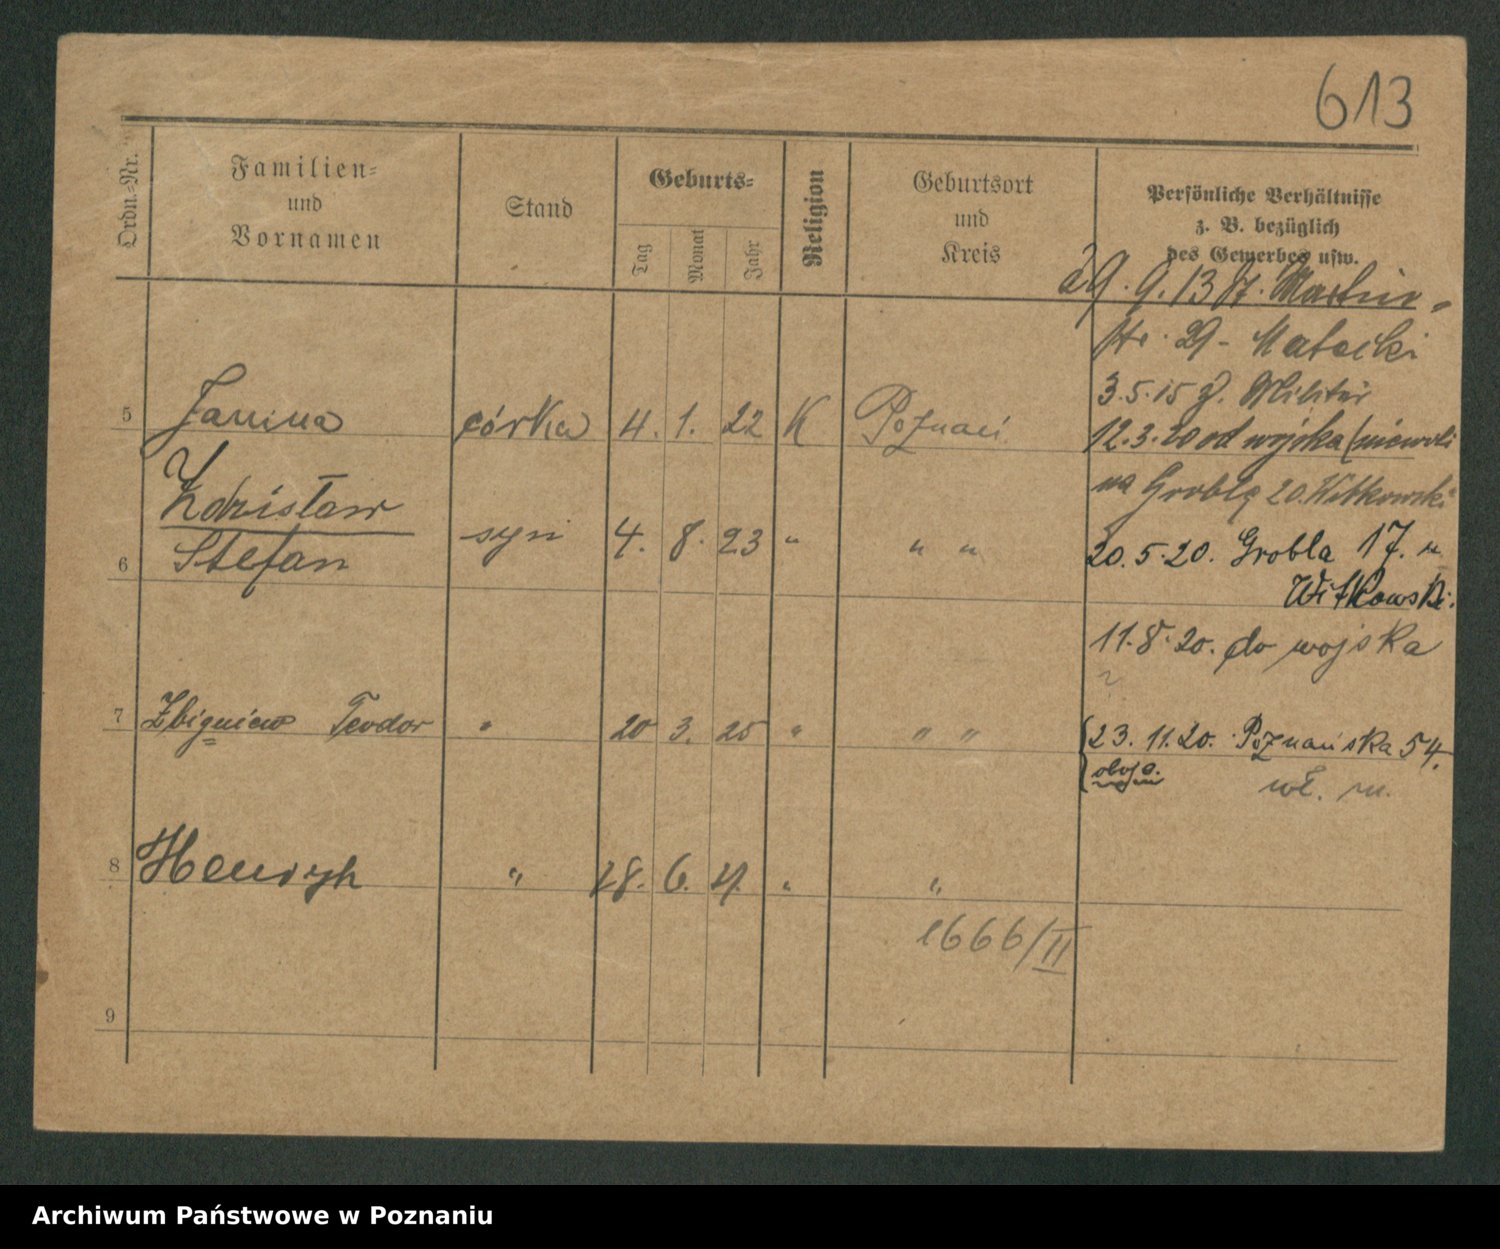 613
Ordn.-Nr.
Familien-
und
Vornamen
Stand
Geburts-
Tag
Monat
Jahr
Religion
Geburtsort
und
Kreis
Persönliche Verhältnisse
z. B. bezüglich
des Gewerbes usw.
29. 9. 13 St. Martin-
str. 29 - Matecki
3. 5. 15 z. Militär
12. 3. 20 od wojska (niewoli
na Groblę 20. Witkowski
20. 5. 20. Grobla 17. u
Witkowski.
11. 8. 20. do wojska
{23. 11. 20. Poznańska 54.
oboje. wł. m.
5 Janina córka 4. 1. 22 K Poznań
Zdzisław
6 Stefan syn 4. 8. 23 " " "
7 Zbigniew Teodor " 20 3. 25 " " "
8 Henryk " 28. 6. " "
1666/II
9
Archiwum Państwowe w Poznaniu